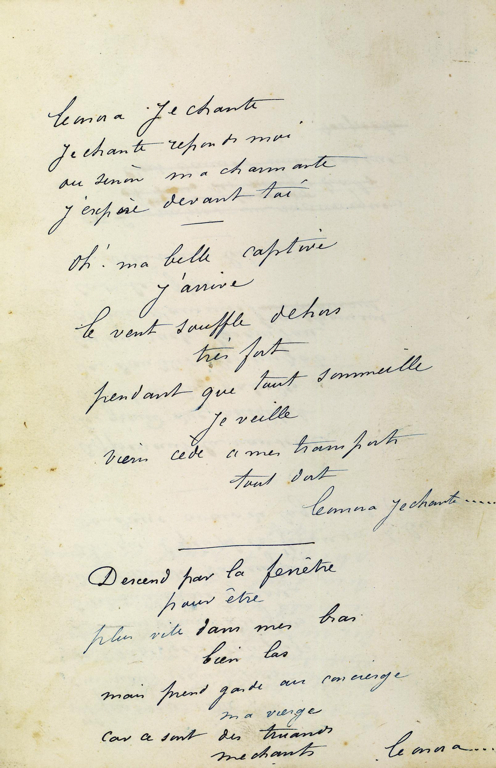 leonora Je chante
Je chante reponds moi
ou sinon ma charmante
j'expire devant toi
Oh! ma belle captive
j'arrive
le vent souffle dehors
très fort
pendant que tout sommeille
je veille
viens cède a mes transports
tout dort
leonora Je chante......
Descend par la fenêtre
pour être
plus vite dans mes bras
bien las
mais prend garde au concierge
ma vierge
car ce sont des truands
mechants
leonora....